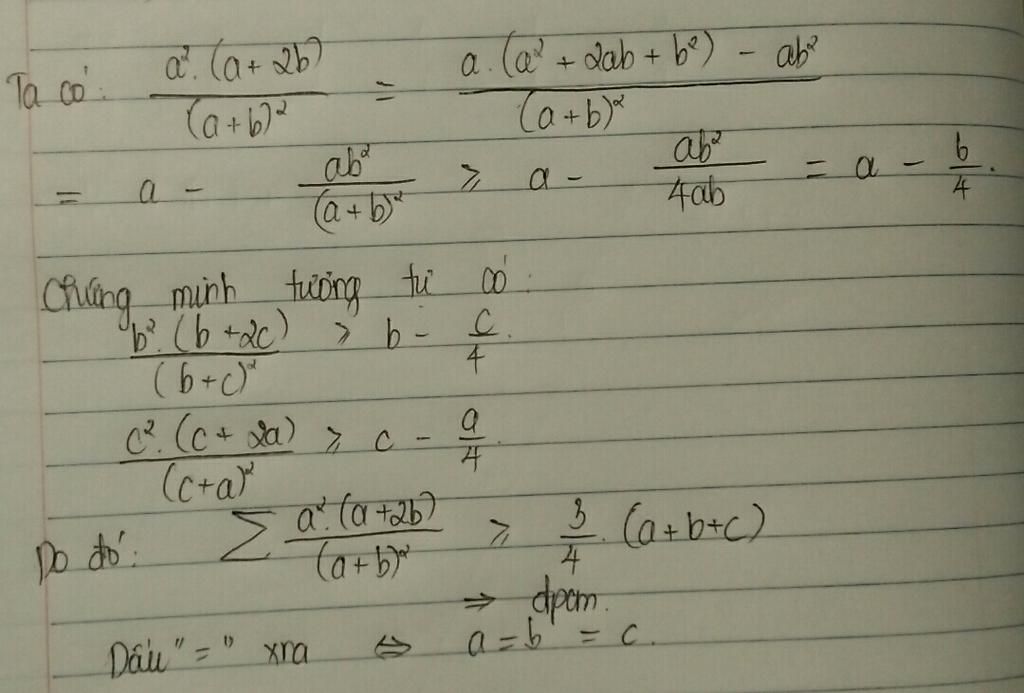 Ta có: a².(a+2b)/(a+b)² = (a.(a²+2ab+b²) - ab²)/(a+b)²
= a - ab²/(a+b)² ≥ a - ab²/4ab = a - b/4.
Chứng minh tương tự có:
b².(b+2c)/(b+c)² ≥ b - c/4.
c².(c+2a)/(c+a)² ≥ c - a/4.
Do đó: ∑ a².(a+2b)/(a+b)² ≥ 3/4.(a+b+c)
⇒ đpcm.
Dấu "=" xra ⇔ a = b = c.